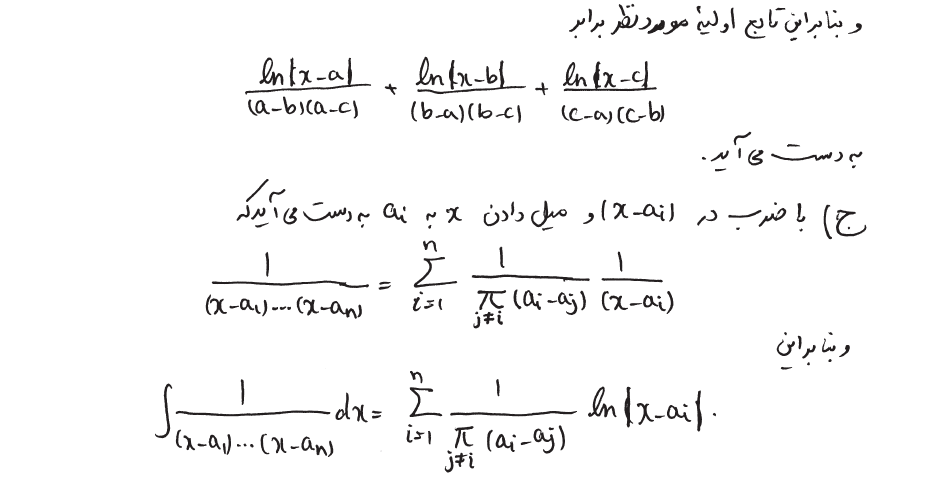 و بنابراین تابع اولیهٔ مورد نظر برابر
ln|x-a|/((a-b)(a-c)) + ln|x-b|/((b-a)(b-c)) + ln|x-c|/((c-a)(c-b))
به دست می‌آید.
ج) با ضرب در (x-aᵢ) و میل دادن x به aᵢ به دست می‌آید که
1/((x-a₁)...(x-aₙ)) = ∑_{i=1}^{n} 1/(∏_{j≠i} (aᵢ-aⱼ)) 1/(x-aᵢ)
و بنابراین
∫ 1/((x-a₁)...(x-aₙ)) dx = ∑_{i=1}^{n} 1/(∏_{j≠i} (aᵢ-aⱼ)) ln|x-aᵢ|.